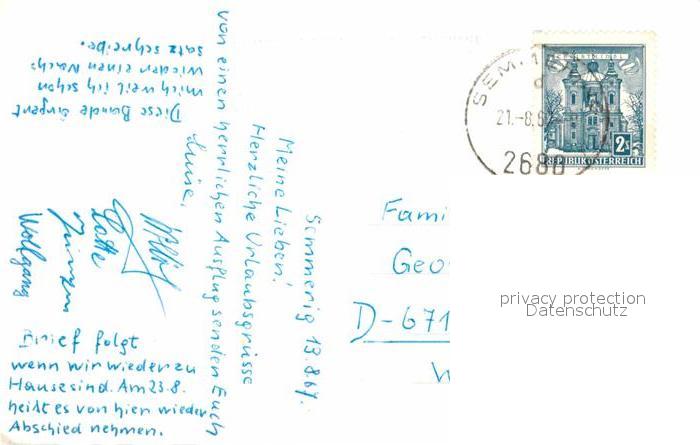 Semmerig 13.8.67.
Meine Lieben!
Herzliche Urlaubsgrüsse
von einen herrlichen Ausflug senden Euch
Luise,
Willi
Lotte
Jürgen
Wolfgang
Diese Bande ärgert
mich weil ich schon
wieder einen Nach-
satz schreibe.
Brief folgt
wenn wir wieder zu
Hause sind. Am 23.8.
heißt es von hier wieder
Abschied nehmen.
SEM
21.-8.67
2680
2 S
REPUBLIK ÖSTERREICH
Fami
Geo
D-671
W
privacy protection
Datenschutz